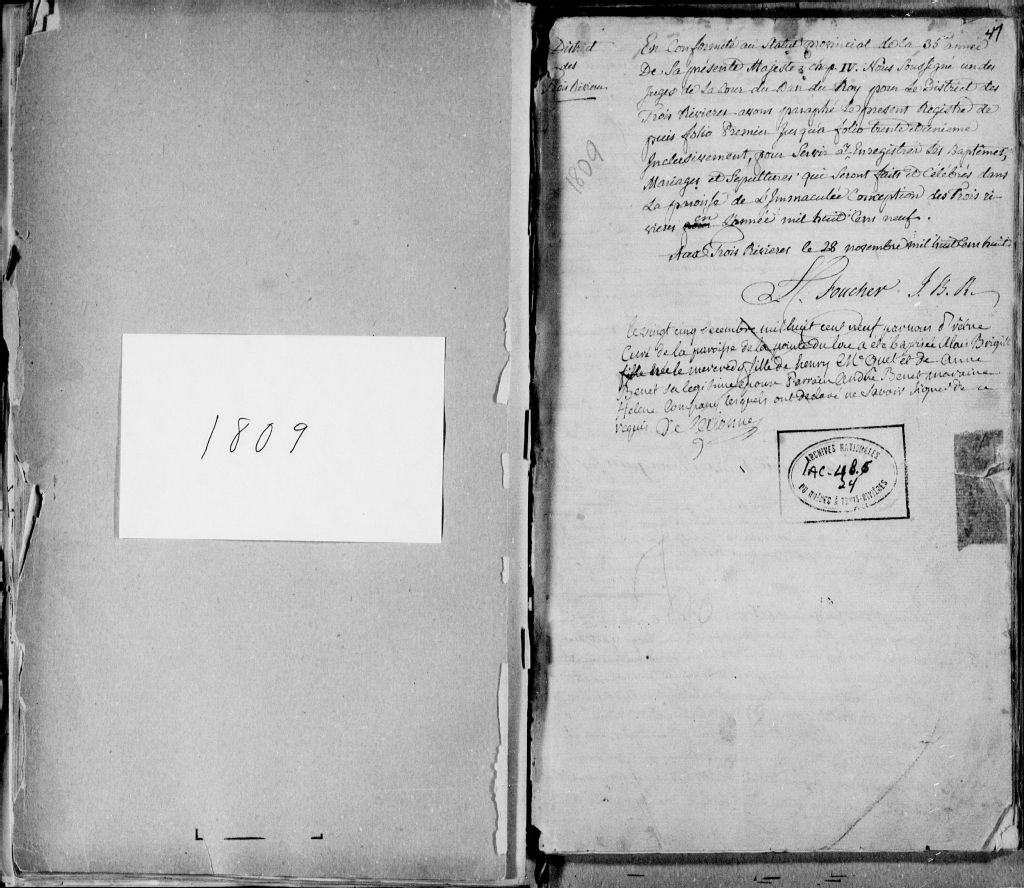 1809
47
District
des
Trois Rivieres
1809
En Conformité au Statut provincial de la 35e année
De Sa présente Majesté chap. IV. Nous Soussigné un des
Juges de La Cour du Ban du Roy pour Le District des
Trois Rivieres avons paraphé Le present Registre de
puis folio Premier Jusqu'a folio trente
Inclusivement, pour Servir a Enregistrer Les Baptêmes,
Mariages et Sepultures qui Seront faits et Célébrés dans
La paroisse de L'Immaculée Conception des Trois ri-
vieres en L'année mil huit Cens neuf.
Aux Trois Rivieres le 28 novembre mil huit Cens huit
L. Foucher J. B. R.
le vingt cinq decembre mil huit cent neuf par nous
Curé de la paroisse de la pointe du lac a été baptisée
née le mercredy fille de henry Mc Ouet et de Anne
Benet sa legitime epouse Parrain André Benet maraine
Helene lesquels ont declaré ne Savoir Signer de ce
requis
ARCHIVES NATIONALES
AC-48.5
24
DU QUÉBEC À TROIS-RIVIÈRES